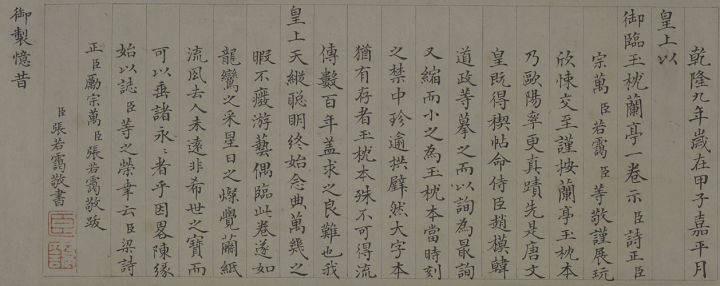 乾隆九年歲在甲子嘉平月
皇上以
御臨玉枕蘭亭一卷示臣詩正臣
宗萬臣若靄臣等敬謹展玩
欣悚交至謹按蘭亭玉枕本
乃歐陽率更真蹟先是唐文
皇既得禊帖命侍臣趙模韓
道政等摹之而以詢為最詢
又縮而小之為玉枕本當時刻
之禁中珍逾拱璧然大字本
猶有存者玉枕本殊不可得流
傳數百年蓋求之良難也我
皇上天縱聰明終始念典萬幾之
暇不癈游藝偶臨此卷遂如
龍鸞之采星日之燦覺繭紙
流風去人未遠非希世之寶而
可以垂諸永〻者乎因畧陳緣
始以誌臣等之榮幸云臣梁詩
正臣勵宗萬臣張若靄敬跋
臣張若靄敬書
御製憶昔